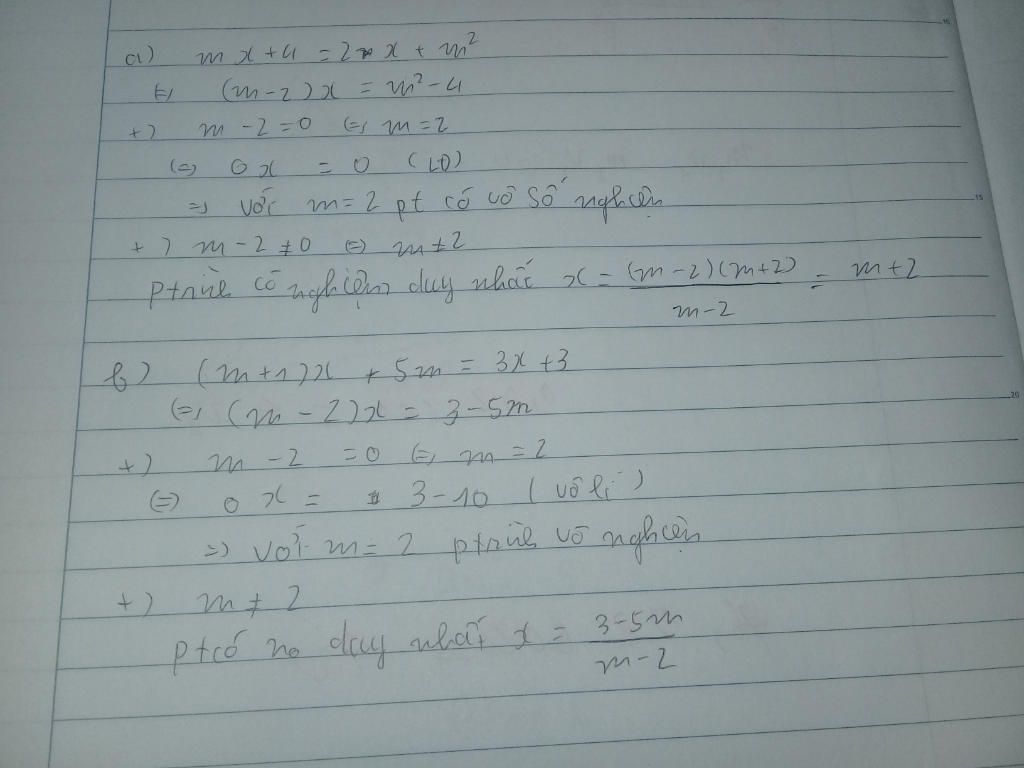 a) mx + 4 = 2x + m²
⇔ (m-2)x = m² - 4
+) m - 2 = 0 ⇔ m = 2
⇔ 0x = 0 (LĐ)
⇒ Với m = 2 pt có vô số nghiệm
+) m - 2 ≠ 0 ⇔ m ≠ 2
Ptrình có nghiệm duy nhất x = (m-2)(m+2) / m-2 = m+2
b) (m+1)x + 5m = 3x + 3
⇔ (m - 2)x = 3 - 5m
+) m - 2 = 0 ⇔ m = 2
⇔ 0x = 3 - 10 (vô lí)
⇒ Với m = 2 ptrình vô nghiệm
+) m ≠ 2
pt có no duy nhất x = 3-5m / m-2
15
20